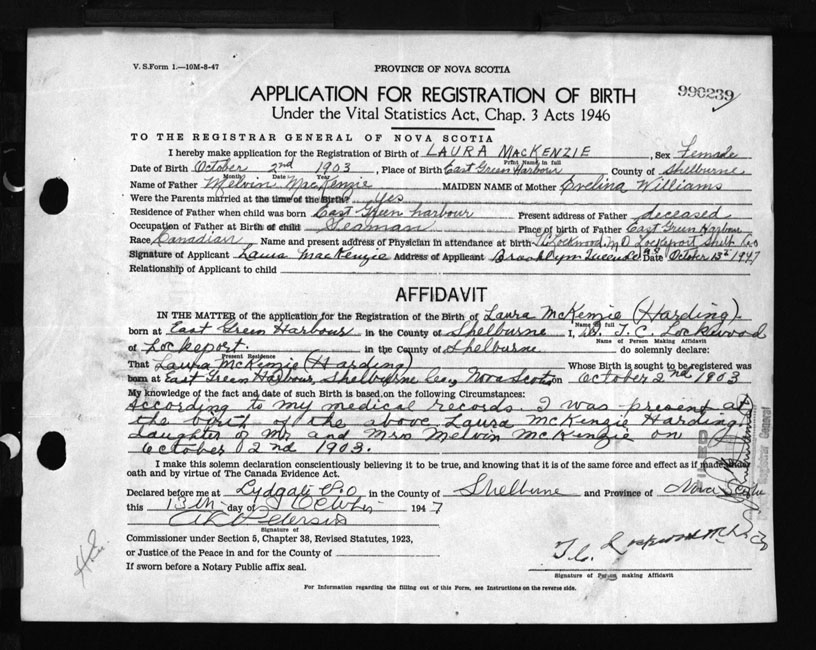 V. S. Form 1.—10M-8-47
PROVINCE OF NOVA SCOTIA
990239
APPLICATION FOR REGISTRATION OF BIRTH
Under the Vital Statistics Act, Chap. 3 Acts 1946
TO THE REGISTRAR GENERAL OF NOVA SCOTIA
I hereby make application for the Registration of Birth of LAURA MACKENZIE, Sex Female
Print Name in full
Date of Birth October 2nd 1903, Place of Birth East Green Harbour County of Shelburne
Month Date Year
Name of Father Melvin MacKenzie MAIDEN NAME of Mother Evelina Williams
Were the Parents married at the time of the Birth? yes
Residence of Father when child was born East Green harbour Present address of Father deceased
Occupation of Father at Birth of child Seaman Place of birth of Father East Green Harbour
Race Canadian Name and present address of Physician in attendance at birth Lockwood, M.D Lockeport Shelb Co
Signature of Applicant Laura MacKenzie Address of Applicant Brooklyn Queens Co Date October 13th 1947
Relationship of Applicant to child
AFFIDAVIT
IN THE MATTER of the application for the Registration of the Birth of Laura McKenzie (Harding)
Name in full
born at East Green Harbour in the County of Shelburne I, Dr. T. C. Lockwood
Name of Person Making Affidavit
of Lockeport. in the County of Shelburne do solemnly declare:
Present Residence
That Laura McKenzie (Harding) Whose Birth is sought to be registered was
born at East Green Harbour, Shelburne Co., Nova Scotia on October 2nd 1903
My knowledge of the fact and date of such Birth is based on the following Circumstances:
According to my medical records. I was present at
the birth of the above Laura McKenzie Harding,
daughter of Mr. and Mrs Melvin McKenzie on
October 2nd 1903.
I make this solemn declaration conscientiously believing it to be true, and knowing that it is of the same force and effect as if made under
oath and by virtue of The Canada Evidence Act.
Declared before me at Lydgate P.O in the County of Shelburne and Province of Nova Scotia
this 13th day of October 1947
Signature of
Commissioner under Section 5, Chapter 38, Revised Statutes, 1923,
or Justice of the Peace in and for the County of
If sworn before a Notary Public affix seal.
T. C. Lockwood M.D.
Signature of Person making Affidavit
For Information regarding the filling out of this Form, see Instructions on the reverse side.